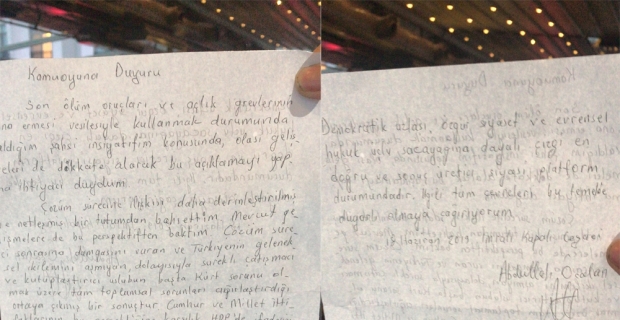 Kamuoyuna Duyuru
Son ölüm oruçları ve açlık grevlerinin
ermesi vesilesiyle kullanmak durumunda
aldığım şahsi insiyatifim konusunda, olası geliş-
meleri de dikkate alarak bu açıklamayı yap
ma ihtiyacı duydum
Çözüm sürecine ilişkin daha derinleştirilmiş
ve netleşmiş bir tutumdan bahsettim. Mevcut ge
lişmelere de bu perspektiften baktım. Çözüm süre-
ci sonrasına damgasını vuran ve Türkiyenin gelenek
sel ikilemini aşmayan, dolayısıyla sürekli çatışmacı
ve kutuplaştırıcı üslubun başta Kürt sorunu ol
mak üzere tüm toplumsal sorunları ağırlaştırdığı
ortaya çıkmış bir sonuçtur. Cumhur ve Millet itti
HDP'de
Demokratik uzlaşı, özgür siyaset ve evrensel
hukuk sacayağına dayalı çizgi en
doğru ve sonuç üretici siyasi platform
durumundadır. İlgili tüm çevreleri bu temelde
duyarlı olmaya çağırıyorum.
18 Haziran 2019 İmralı Kapalı Cezaevi
Abdullah Öcalan